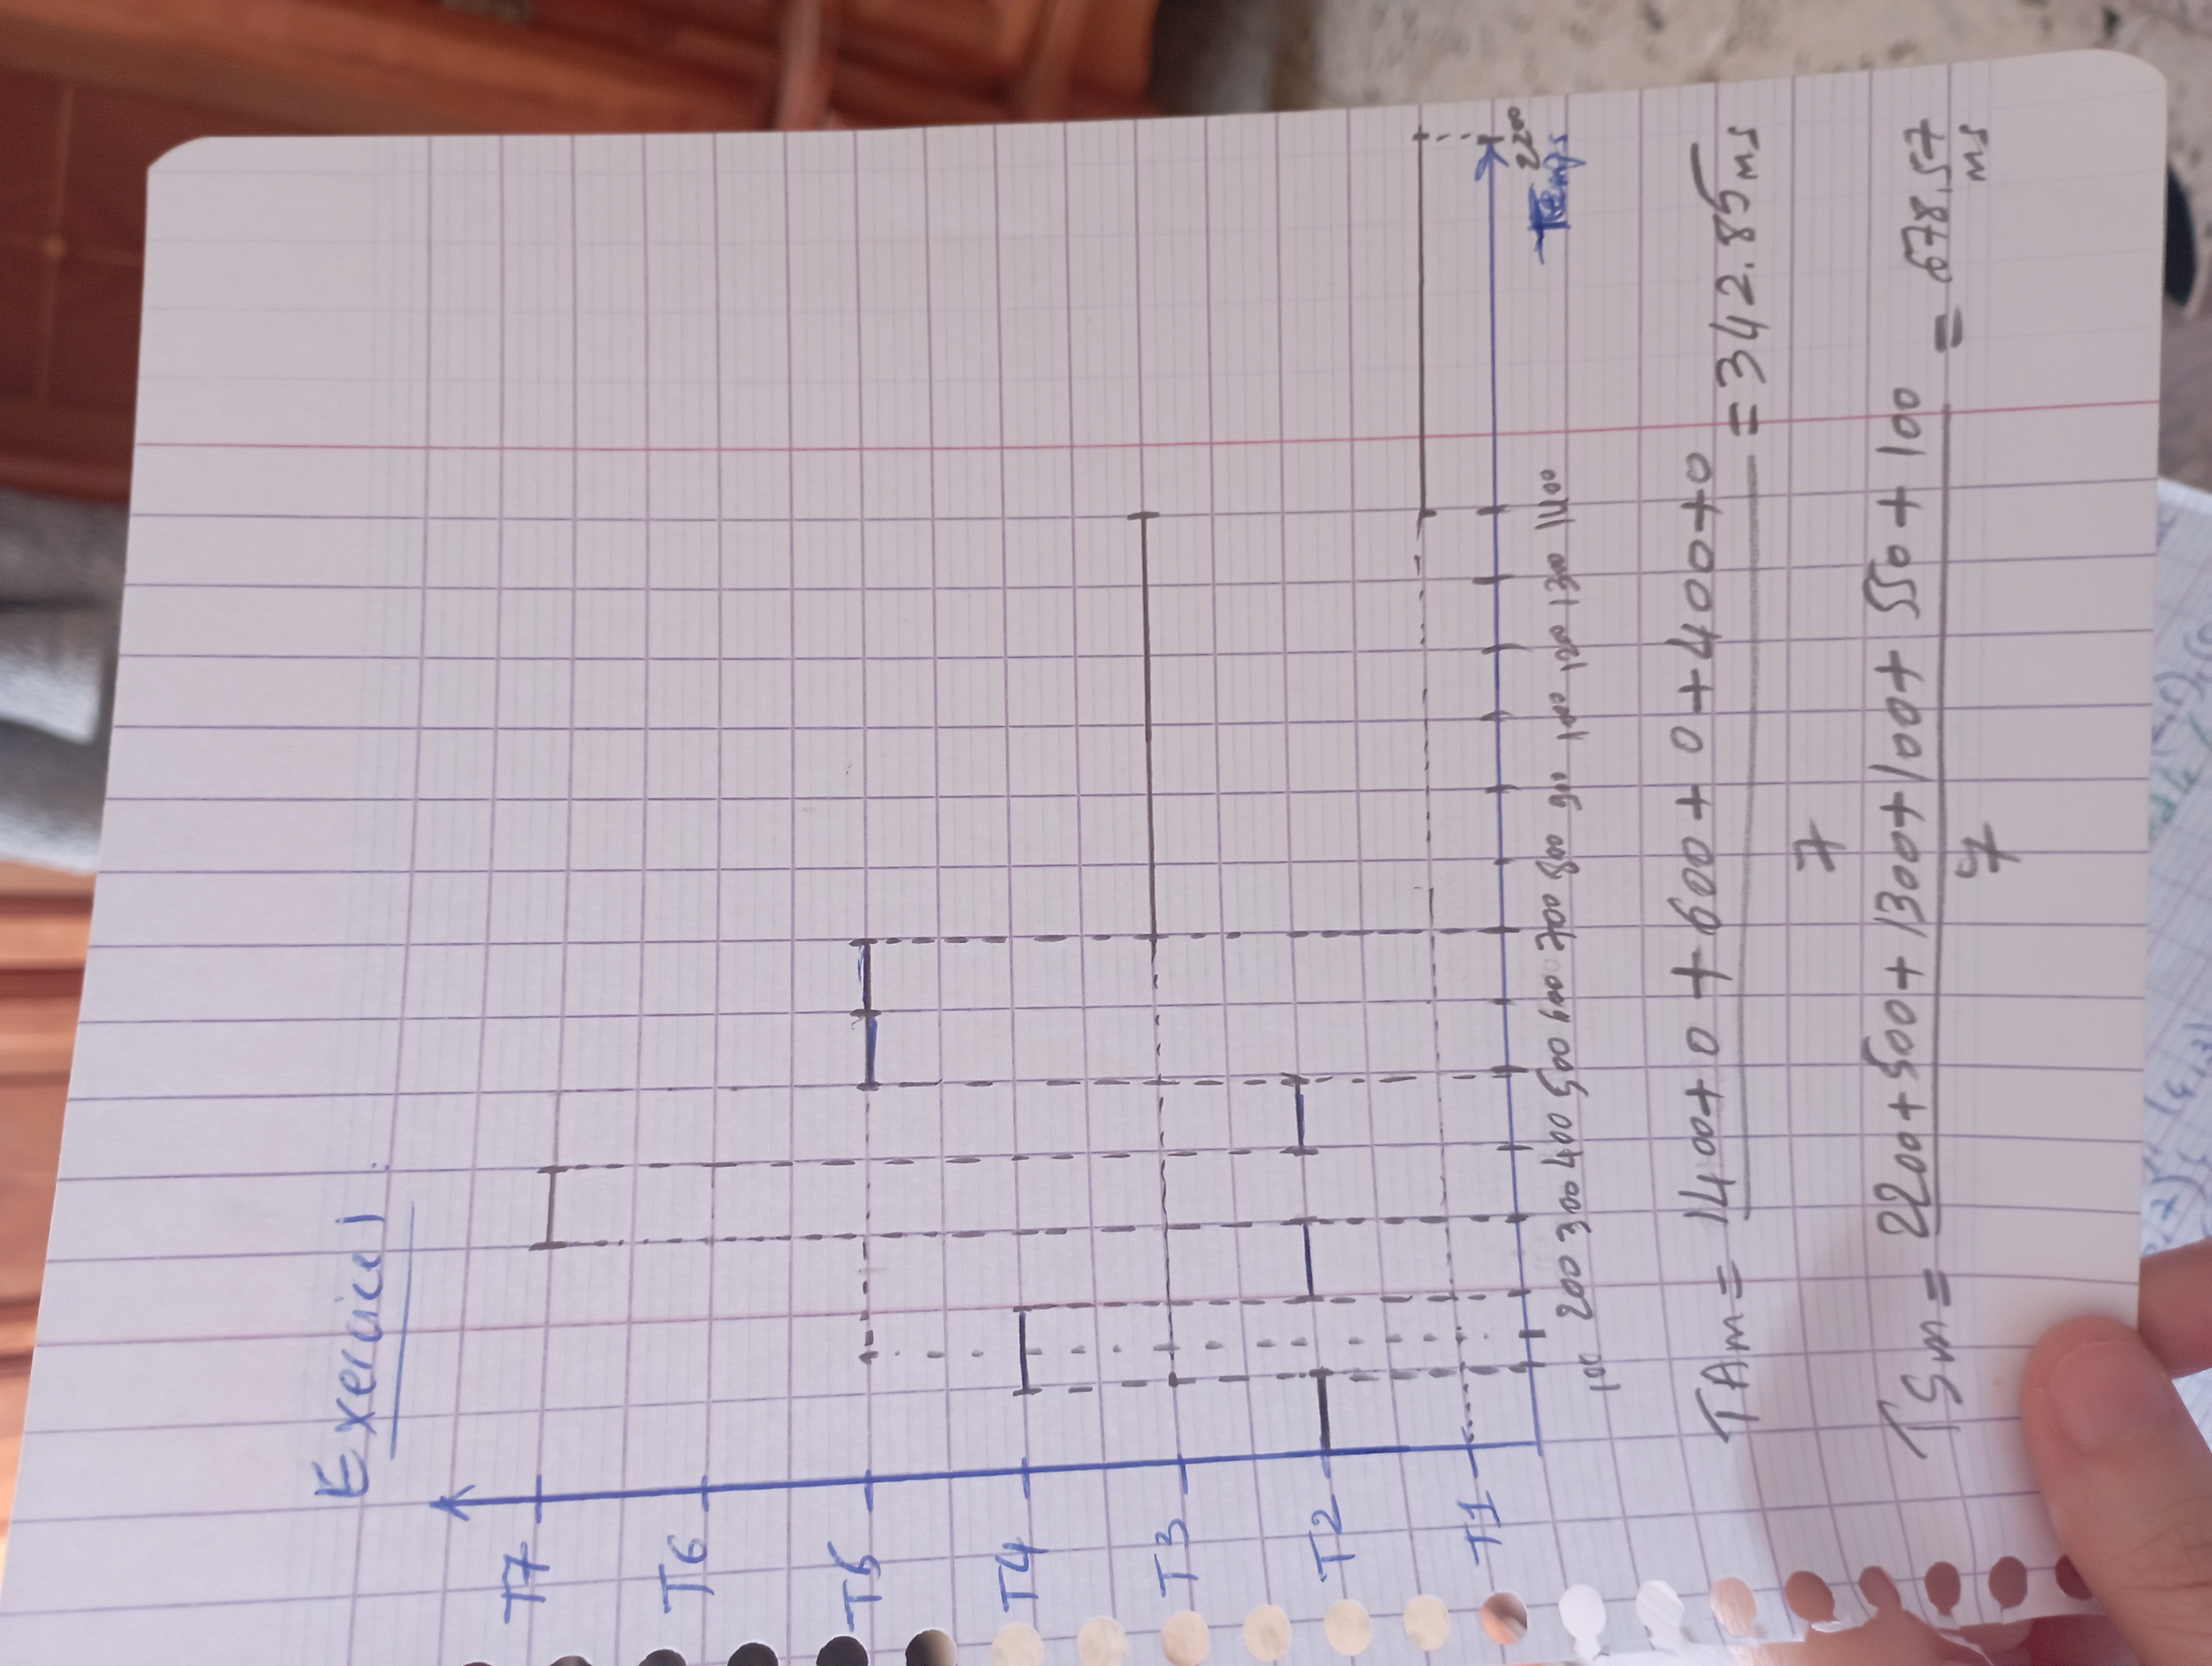 Exercice 1
T7
T6
T5
T4
T3
T2
T1
100 200 300 400 500 600 700 800 900 1000 1200 1300 1400 2200
Temps
TAm = 1400 + 0 + 600 + 0 + 400 + 0 / 7 = 342.85 ms
TSm = 2200 + 500 + 1300 + 100 + 550 + 100 / 7 = 678,57 ms